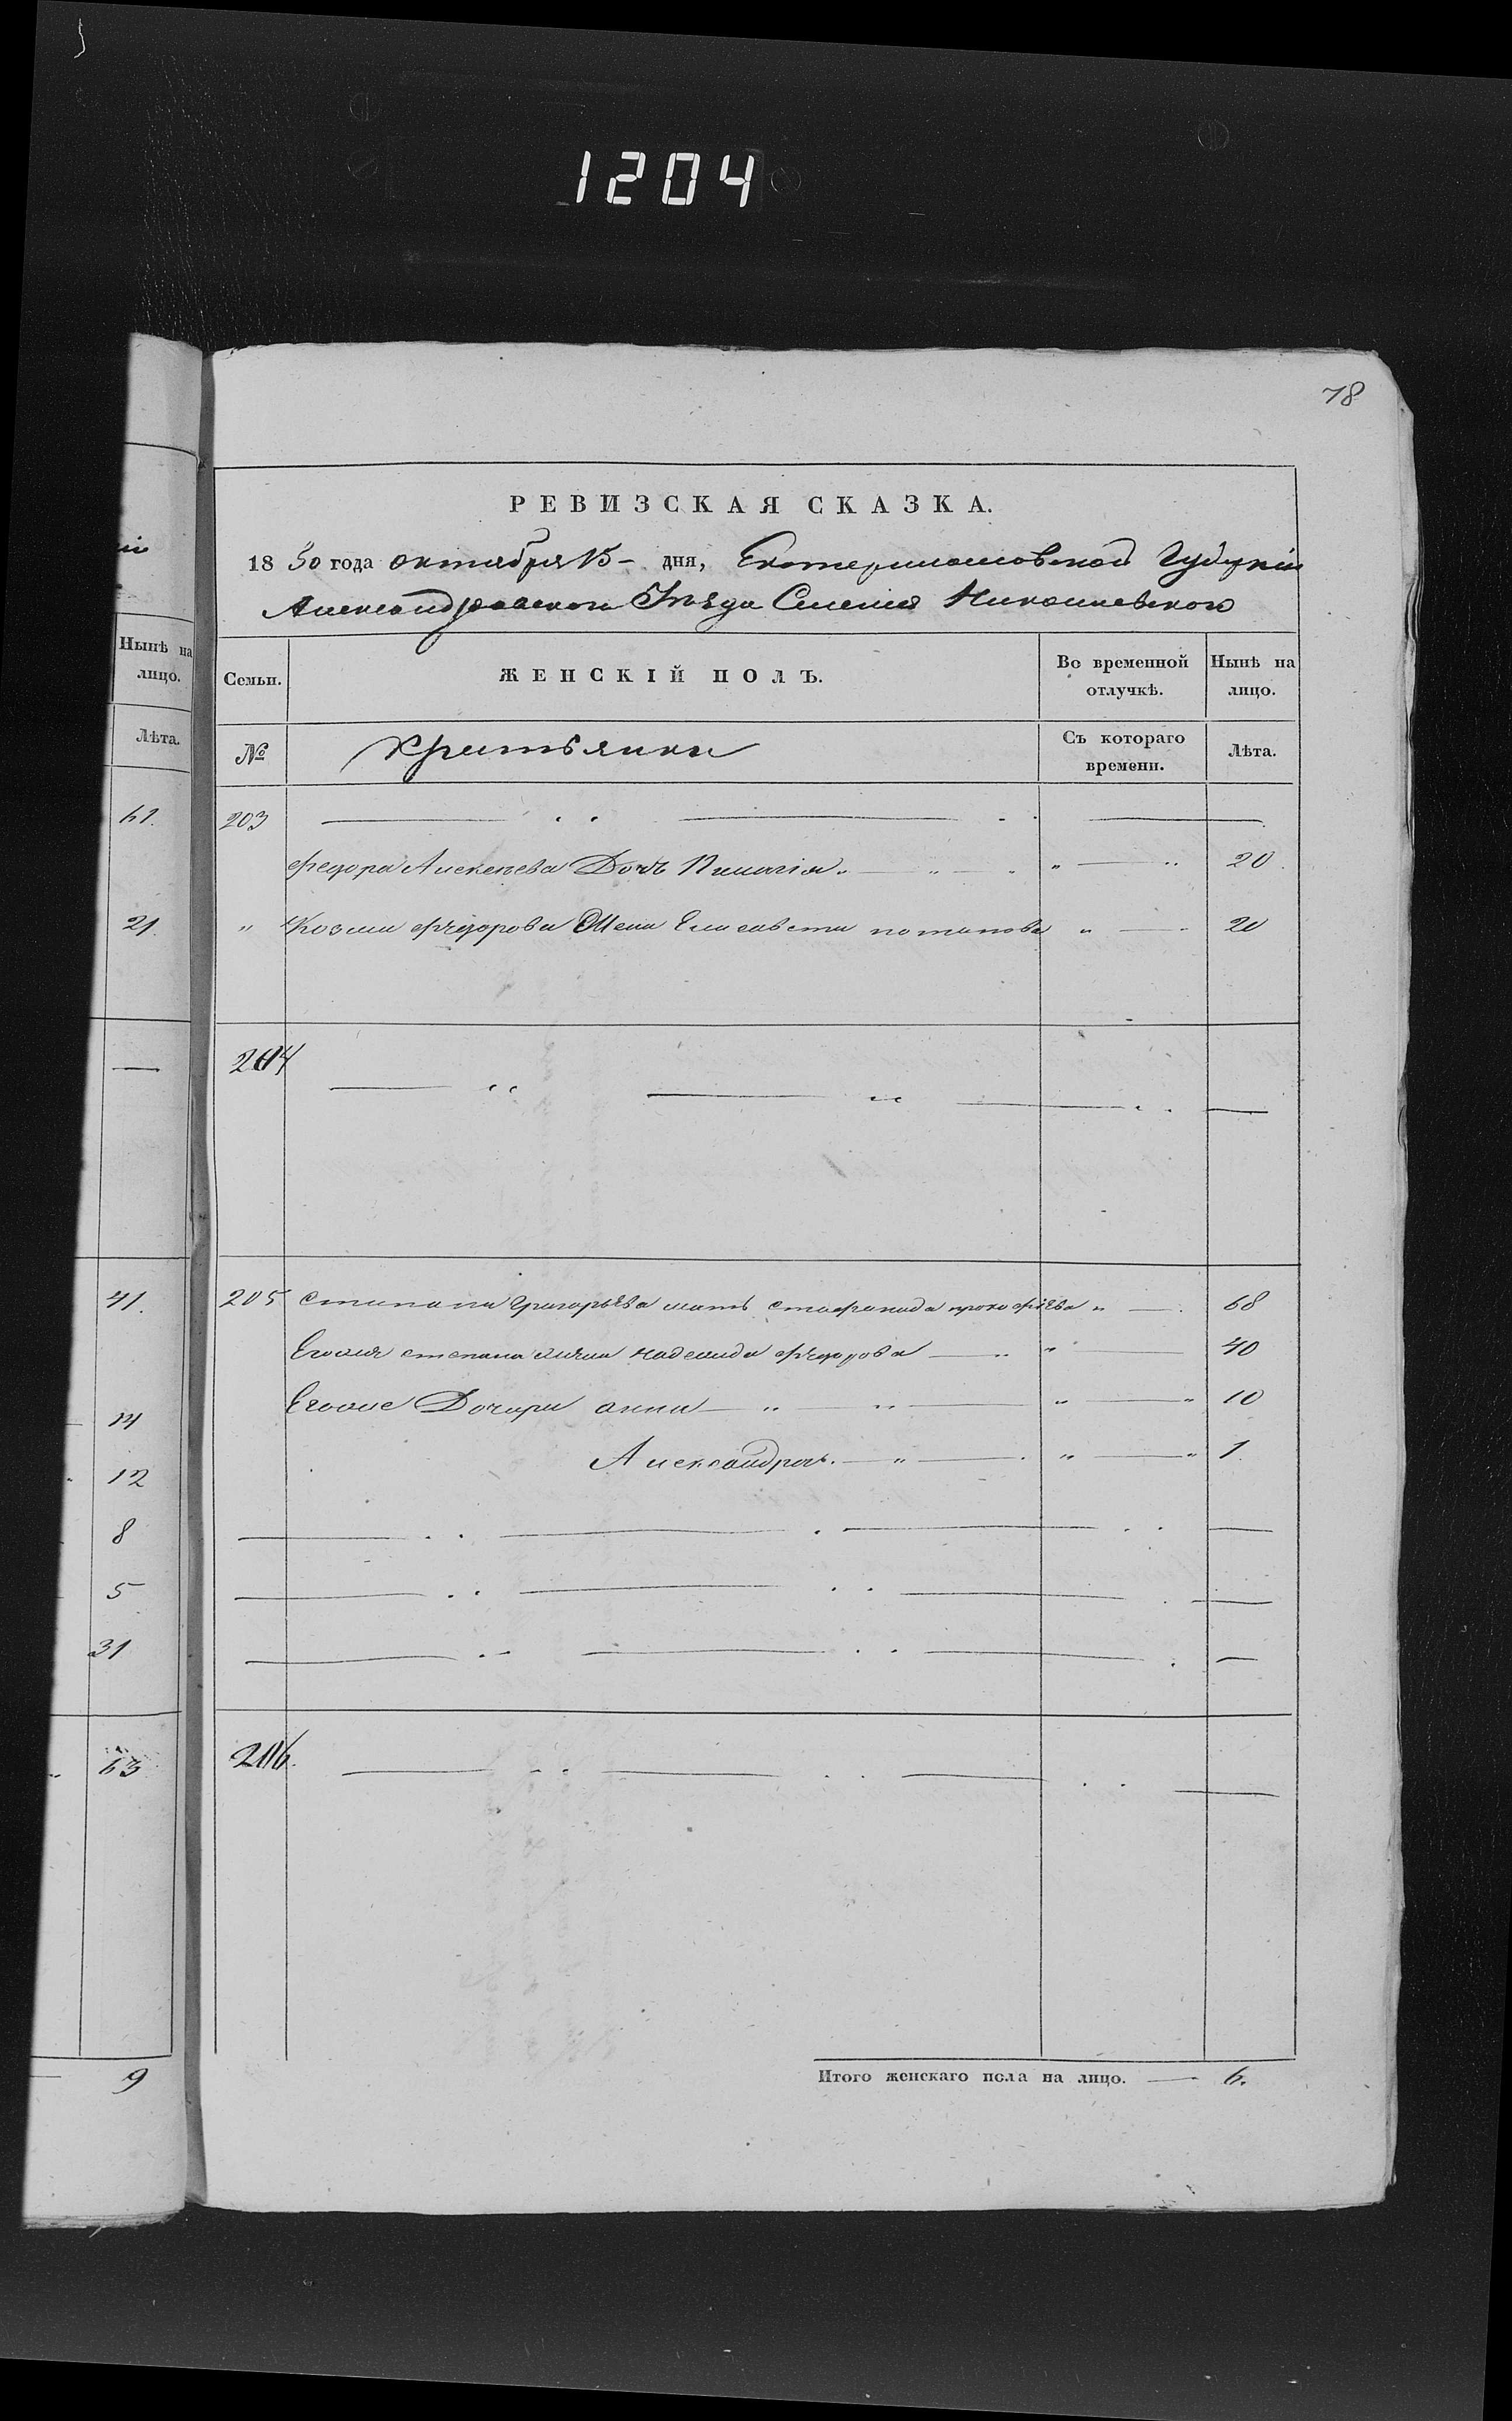 1204
78
РЕВИЗСКАЯ СКАЗКА.
1850 года октября 15 - дня, Екатеринославской Губернии
Александровского Уезда Селения Николаевского
Нынѣ на
лицо.
Лѣта.
61.
21.
—
41.
14
12
8
5
31
63
9
Семьи.
ЖЕНСКІЙ ПОЛЪ.
Во временной
отлучкѣ.
Нынѣ на
лицо.
№
Съ котораго
времени.
Лѣта.
203
Федора Алексеева Дочь Пелагія 20
" Козмы Фёдорова Жена Елисавета потапова " 20
204
205 Степана Григорьева мать Стефанида прокофіева " 68
Егоже степана жена надежда фёдорова " 40
Егоже Дочери анна " 10
Александра " 1
206.
Итого женскаго пола на лицо. — 6.